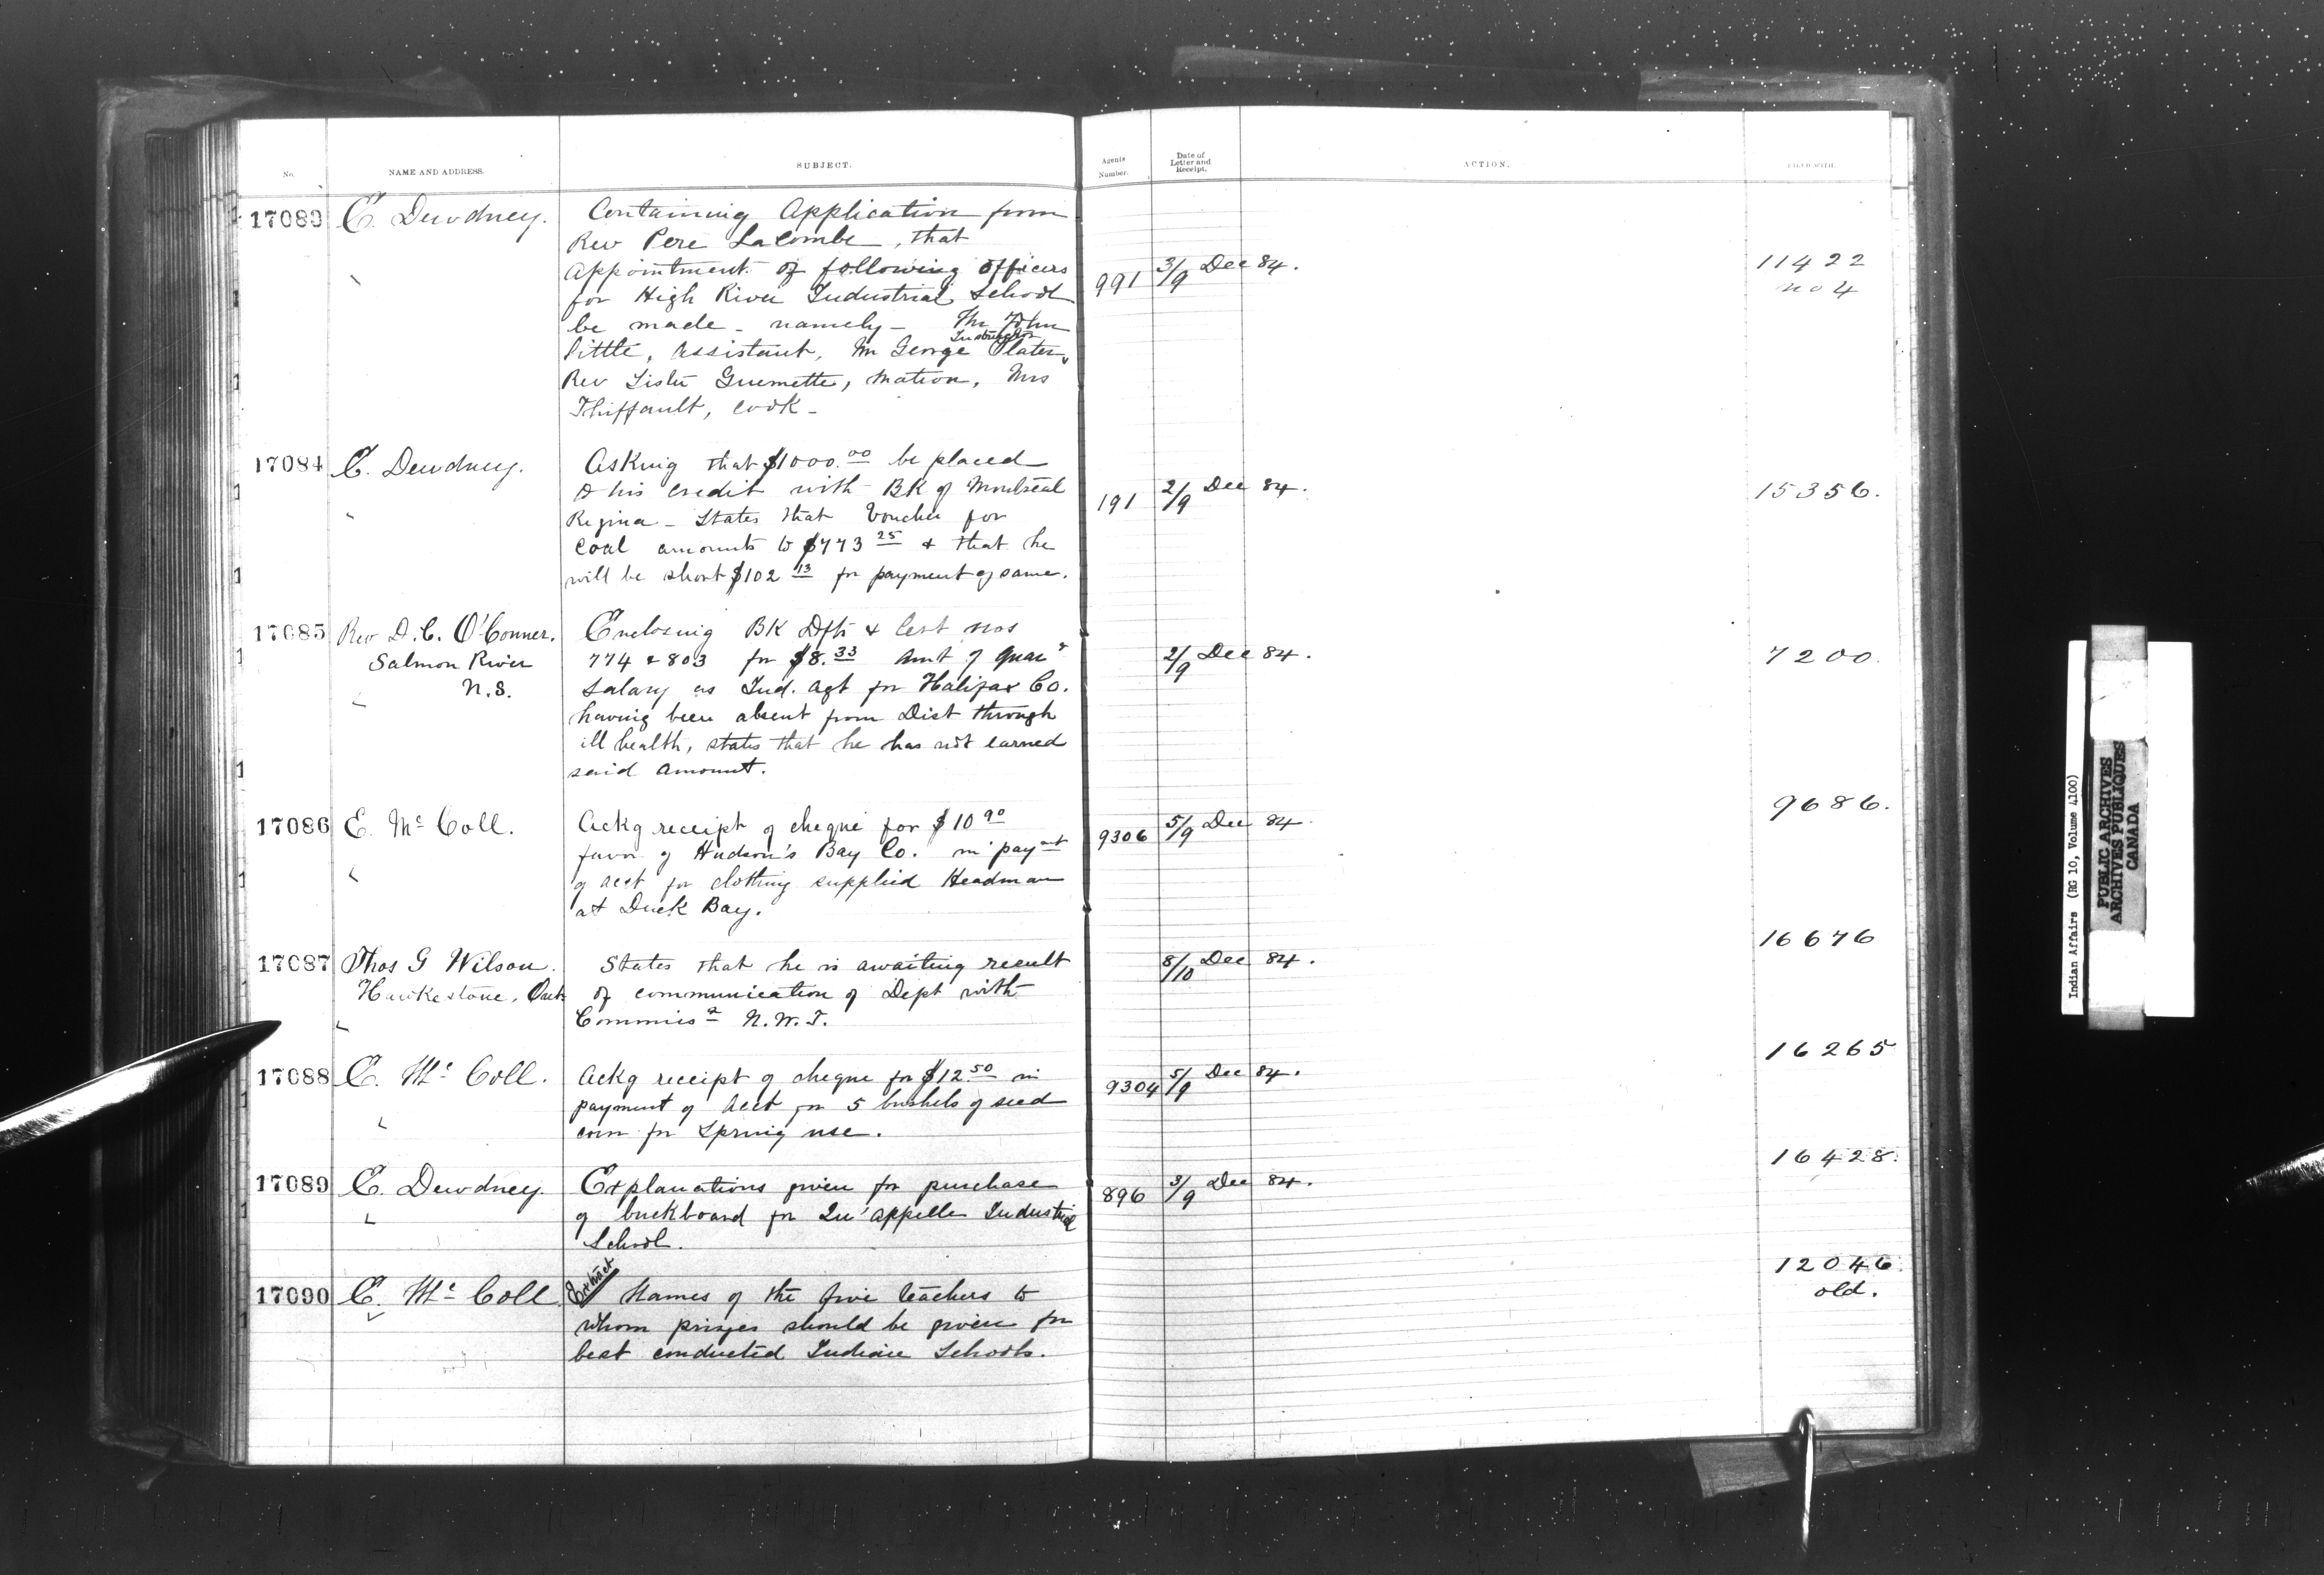 No.
NAME AND ADDRESS.
SUBJECT.
Agents Number.
Date of Letter and Receipt.
ACTION.
FILED WITH
17083 E. Dewdney. Containing Application from
Rev Pere LaCombe, that
appointment of following officers
for High River Industrial School
be made - namely - Mr John
Pittle, Assistant, Mr George Slater, Instructor
Rev Sister Guemette, Matron, Mrs
Thiffault, cook -
991 3/9 Dec 84.
11422
no 4
17084 E. Dewdney. Asking that $1000.00 be placed
to his credit with BK of Montreal
Regina - States that Voucher for
coal amounts to $773 25 & that he
will be short $102 13 for payment of same.
191 2/9 Dec 84.
15356.
17085 Rev D. C. O'Conner. Enclosing BK Dfts & Cert nos
Salmon River 774 & 803 for $8.33 Amt of Quar"
N.S. Salary as Ind. Agt for Halifax Co.
having been absent from Dist through
ill health, states that he has not earned
said amount.
2/9 Dec 84.
7200.
17086 E. Mc Coll. Ackg receipt of cheque for $10 90
favor of Hudson's Bay Co. in paymt
of acct for clothing supplied Headman
at Duck Bay.
9306 5/9 Dec 84.
9686.
17087 Thos G Wilson. States that he is awaiting result
Hawkestone, Ont of communication of Dept with
Commissr N.W.T.
8/10 Dec 84.
16676
17088 E. Mc Coll. Ackg receipt of cheque for $12.50 in
payment of acct for 5 bushels of seed
corn for Spring use.
9304 5/9 Dec 84.
16265
17089 E. Dewdney. Explanations given for purchase
of buckboard for Qu'appelle Industrial
School.
896 3/9 Dec 84.
16428.
17090 E. Mc Coll. Extract Names of the five teachers to
whom prizes should be given for
best conducted Indian Schools.
12046.
old.
Indian Affairs (RG 10, Volume 4100)
PUBLIC ARCHIVES
ARCHIVES PUBLIQUES
CANADA